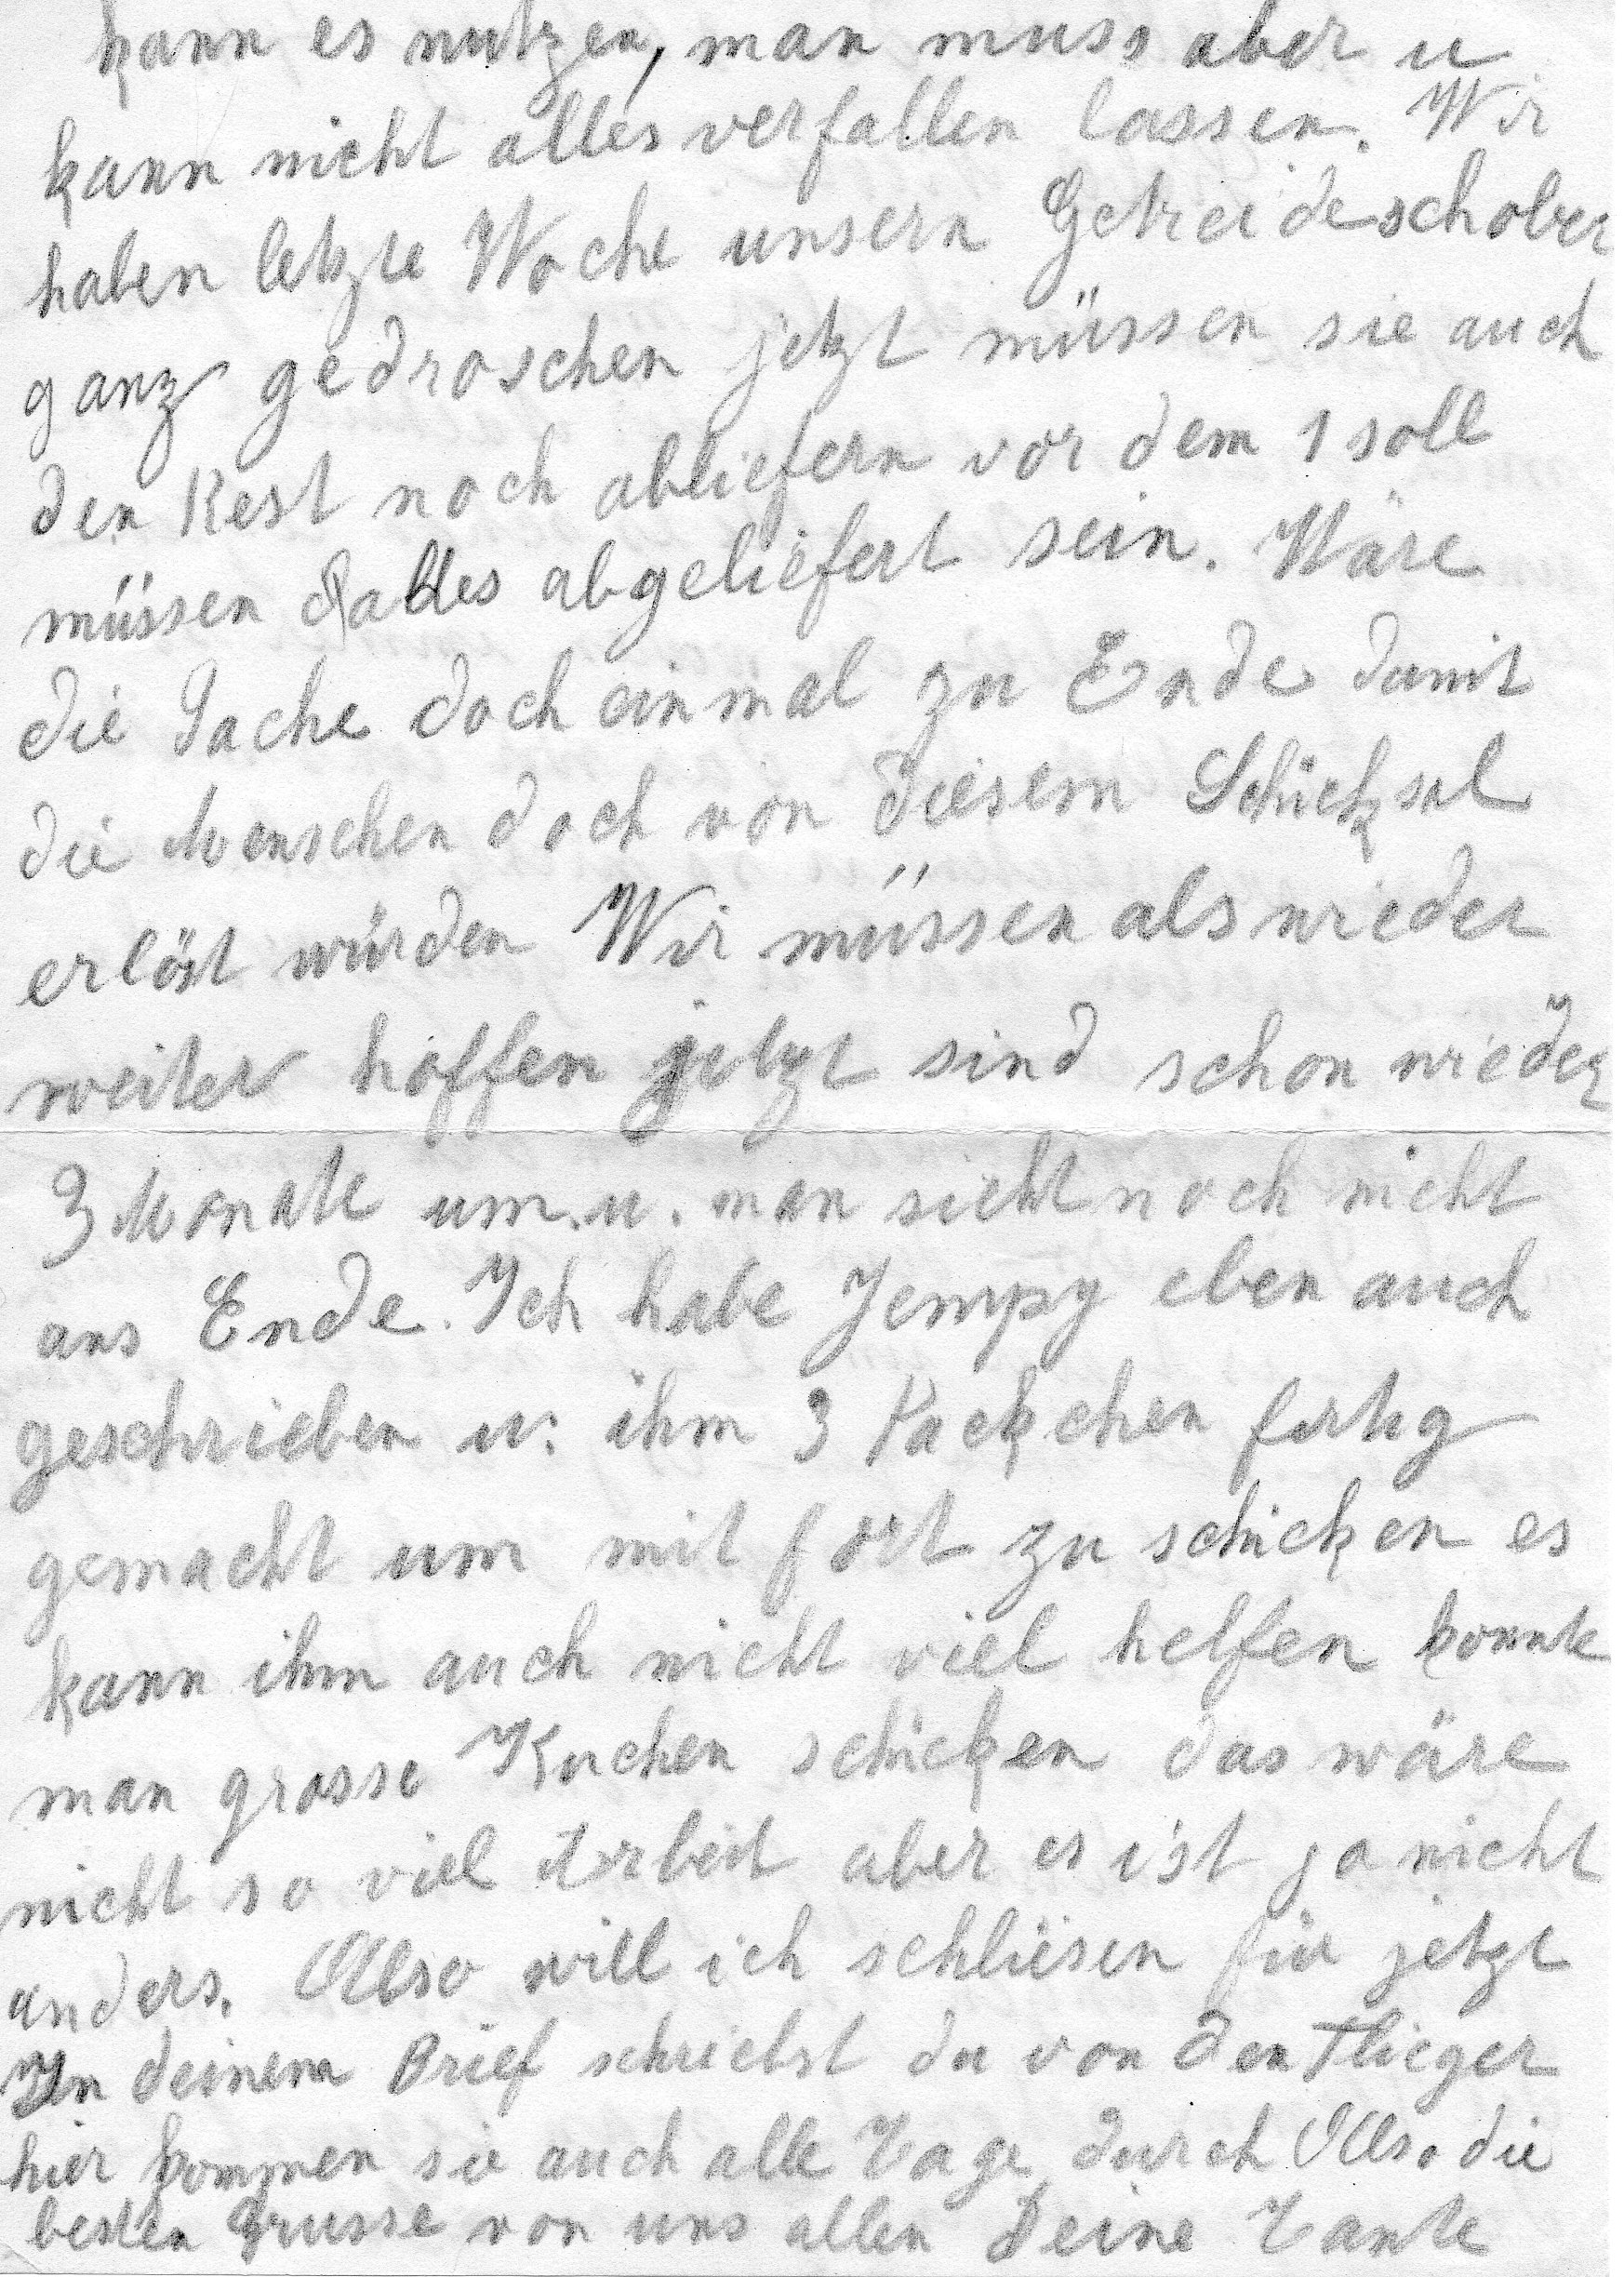 kann es nutzen, man muss aber u
kann nicht alles verfallen lassen. Wir
haben letzte Woche unsern Getreideschober
ganz gedroschen jetzt müssen sie auch
den Rest noch abliefern vor dem 1 soll
müssen alles abgeliefert sein. Wäre
die Sache doch einmal zu Ende damit
die Menschen doch von diesem Schicksal
erlöst würden Wir müssen als wieder
weiter hoffen jetzt sind schon wieder
3 Monate um. u. man sieht noch nicht
ans Ende. Ich habe Jempy eben auch
geschrieben u. ihm 3 Packchen fertig
gemacht um mit fort zu schicken es
kann ihm auch nicht viel helfen konnte
man grosse Kuchen schicken das wäre
nicht so viel Arbeit aber es ist ja nicht
anders. Also will ich schliesen für jetzt
In deinem Brief schriebst du von den Flieger
hier kommen sie auch alle Tage durch Also die
besten Grusse von uns allen Deine Tante